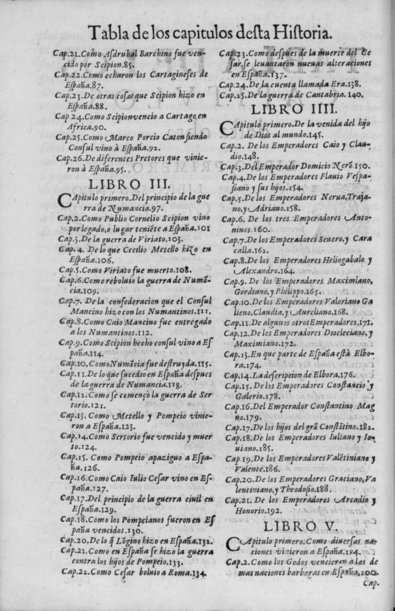 Tabla de los capitulos desta Historia.
Cap.21.Como Asdrubal Barchino fue ven-
cido por Scipion.85.
Cap.22.Como echaron los Cartagineses de
España.87.
Cap.23.De otras cosas que Scipion hizo en
España.88.
Cap.24.Como Scipion vencio a Cartago en
Africa.90.
Cap.25.Como Marco Porcio Caton siendo
Consul vino à España.92.
Cap.26.De diferentes Pretores que vinie-
ron à España.95.
LIBRO III.
Capitulo primero.Del principio de la gue
rra de Numancia.97.
Cap.2.Como Publio Cornelio Scipion vino
por legado, o lugar teniẽte a España.101
Cap.3.De la guerra de Viriato.103.
Cap.4.De lo que Cecilio Metello hizo en
España.106.
Cap.5.Como Viriato fue muerto.108.
Cap.6.Como reboluio la guerra de Numã-
cia.109.
Cap.7.De la confederacion que el Consul
Mancino hizo con los Numantinos.111.
Cap.8.Como Caio Mancino fue entregado
a los Numantinos.112.
Cap.9.Como Scipion hecho consul vino a Es
paña.114.
Cap.10.Como Numãcia fue destruyda.115.
Cap.11.De lo que sucedio en España despues
de la guerra de Numancia.118.
Cap.12.Como se començo la guerra de Ser
torio.121.
Cap.13.Como Metello y Pompeio vinie-
ron a España.123.
Cap.14.Como Sertorio fue vencido y muer
to.124.
Cap.15.Como Pompeio apaziguo a Espa-
ña.126.
Cap.16.Como Caio Iulio Cesar vino en Es-
paña.127.
Cap.17.Del principio de la guerra ciuil en
España.129.
Cap.18.Como los Pompeianos fueron en Es
paña vencidos.130.
Cap.20.De lo q̃ Lõgino hizo en España.132
Cap.21.Como en España se hizo la guerra
contra los hijos de Pompeio.133.
Cap.22.Como Cesar boluio a Roma.134.
Cap.23.Como despues de la muerte del Ce
sar, se leuantaron nueuas alteraciones
en España.137.
Cap.24.De la cuenta llamada Era.138.
Cap.25.De la guerra de Cantabria.140.
LIBRO IIII.
Capitulo primero.De la venida del hijo
de Dios al mundo.145.
Cap.2.De los Emperadores Caio y Clau-
dio.148.
Cap.3.Del Emperador Domicio Nerõ.150.
Cap.4.De los Emperadores Flauio Vespa-
siano y sus hijos.154.
Cap.5.De los Emperadores Nerua,Traja-
no, y Adriano.158.
Cap.6.De los tres Emperadores Anto-
ninos.160.
Cap.7.De los Emperadores Seuero,y Cara
calla.162.
Cap.8.De los Emperadores Heliogabalo y
Alexandro.164.
Cap.9.De los Emperadores Maximiano,
Gordiano,y Philippo.165.
Cap.10.De los Emperadores Valeriano Ga
lieno,Claudio,y Aureliano.168.
Cap.11.De algunos otros Emperadores.171.
Cap.12.De los Emperadores Diocleciano,y
Maximiano.172.
Cap.13.En que parte de España està Elbo-
ra.174.
Cap.14.La descripcion de Elbora.176.
Cap.15.De los Emperadores Constancio y
Galerio.178.
Cap.16.Del Emperador Constantino Mag
no.179.
Cap.17.De los hijos del grã Constãtino.181.
Cap.18.De los Emperadores Iuliano y Io-
uiano.185.
Cap.19.De los Emperadores Valẽtiniano y
Valente.186.
Cap.20.De los Emperadores Graciano,Va
lentiniano,y Theodosio.188.
Cap.21.De los Emperadores Arcadio y
Honorio.192.
LIBRO V.
Capitulo primero.Como diuersas na-
ciones vinieron a España.194.
Cap.2.Como los Godos vencieron a las de
mas naciones barbaras en España,200
Cap.